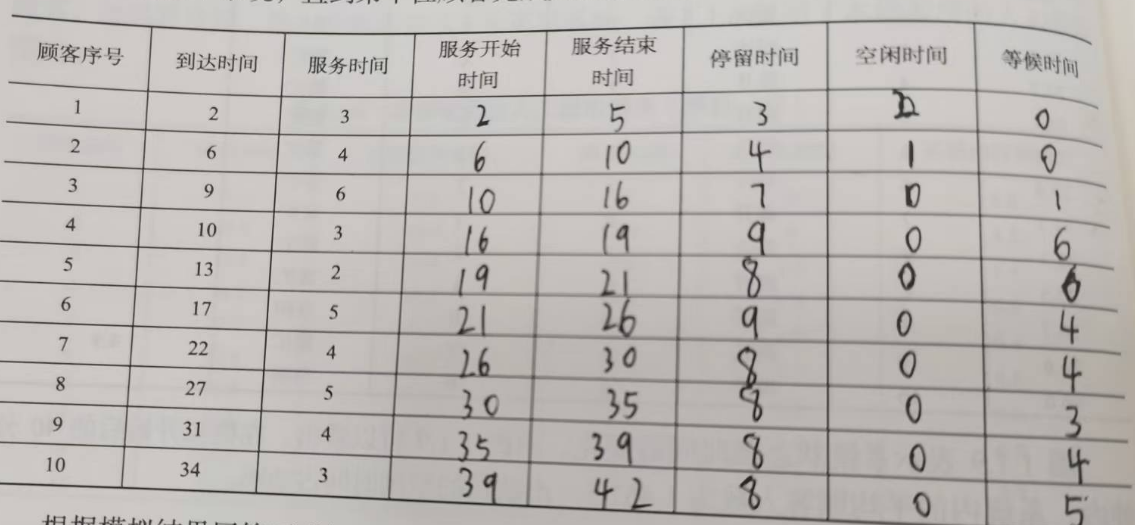 顾客序号 到达时间 服务时间 服务开始时间 服务结束时间 停留时间 空闲时间 等候时间
1 2 3 2 5 3 2 0
2 6 4 6 10 4 1 0
3 9 6 10 16 7 0 1
4 10 3 16 19 9 0 6
5 13 2 19 21 8 0 6
6 17 5 21 26 9 0 4
7 22 4 26 30 8 0 4
8 27 5 30 35 8 0 3
9 31 4 35 39 8 0 4
10 34 3 39 42 8 0 5